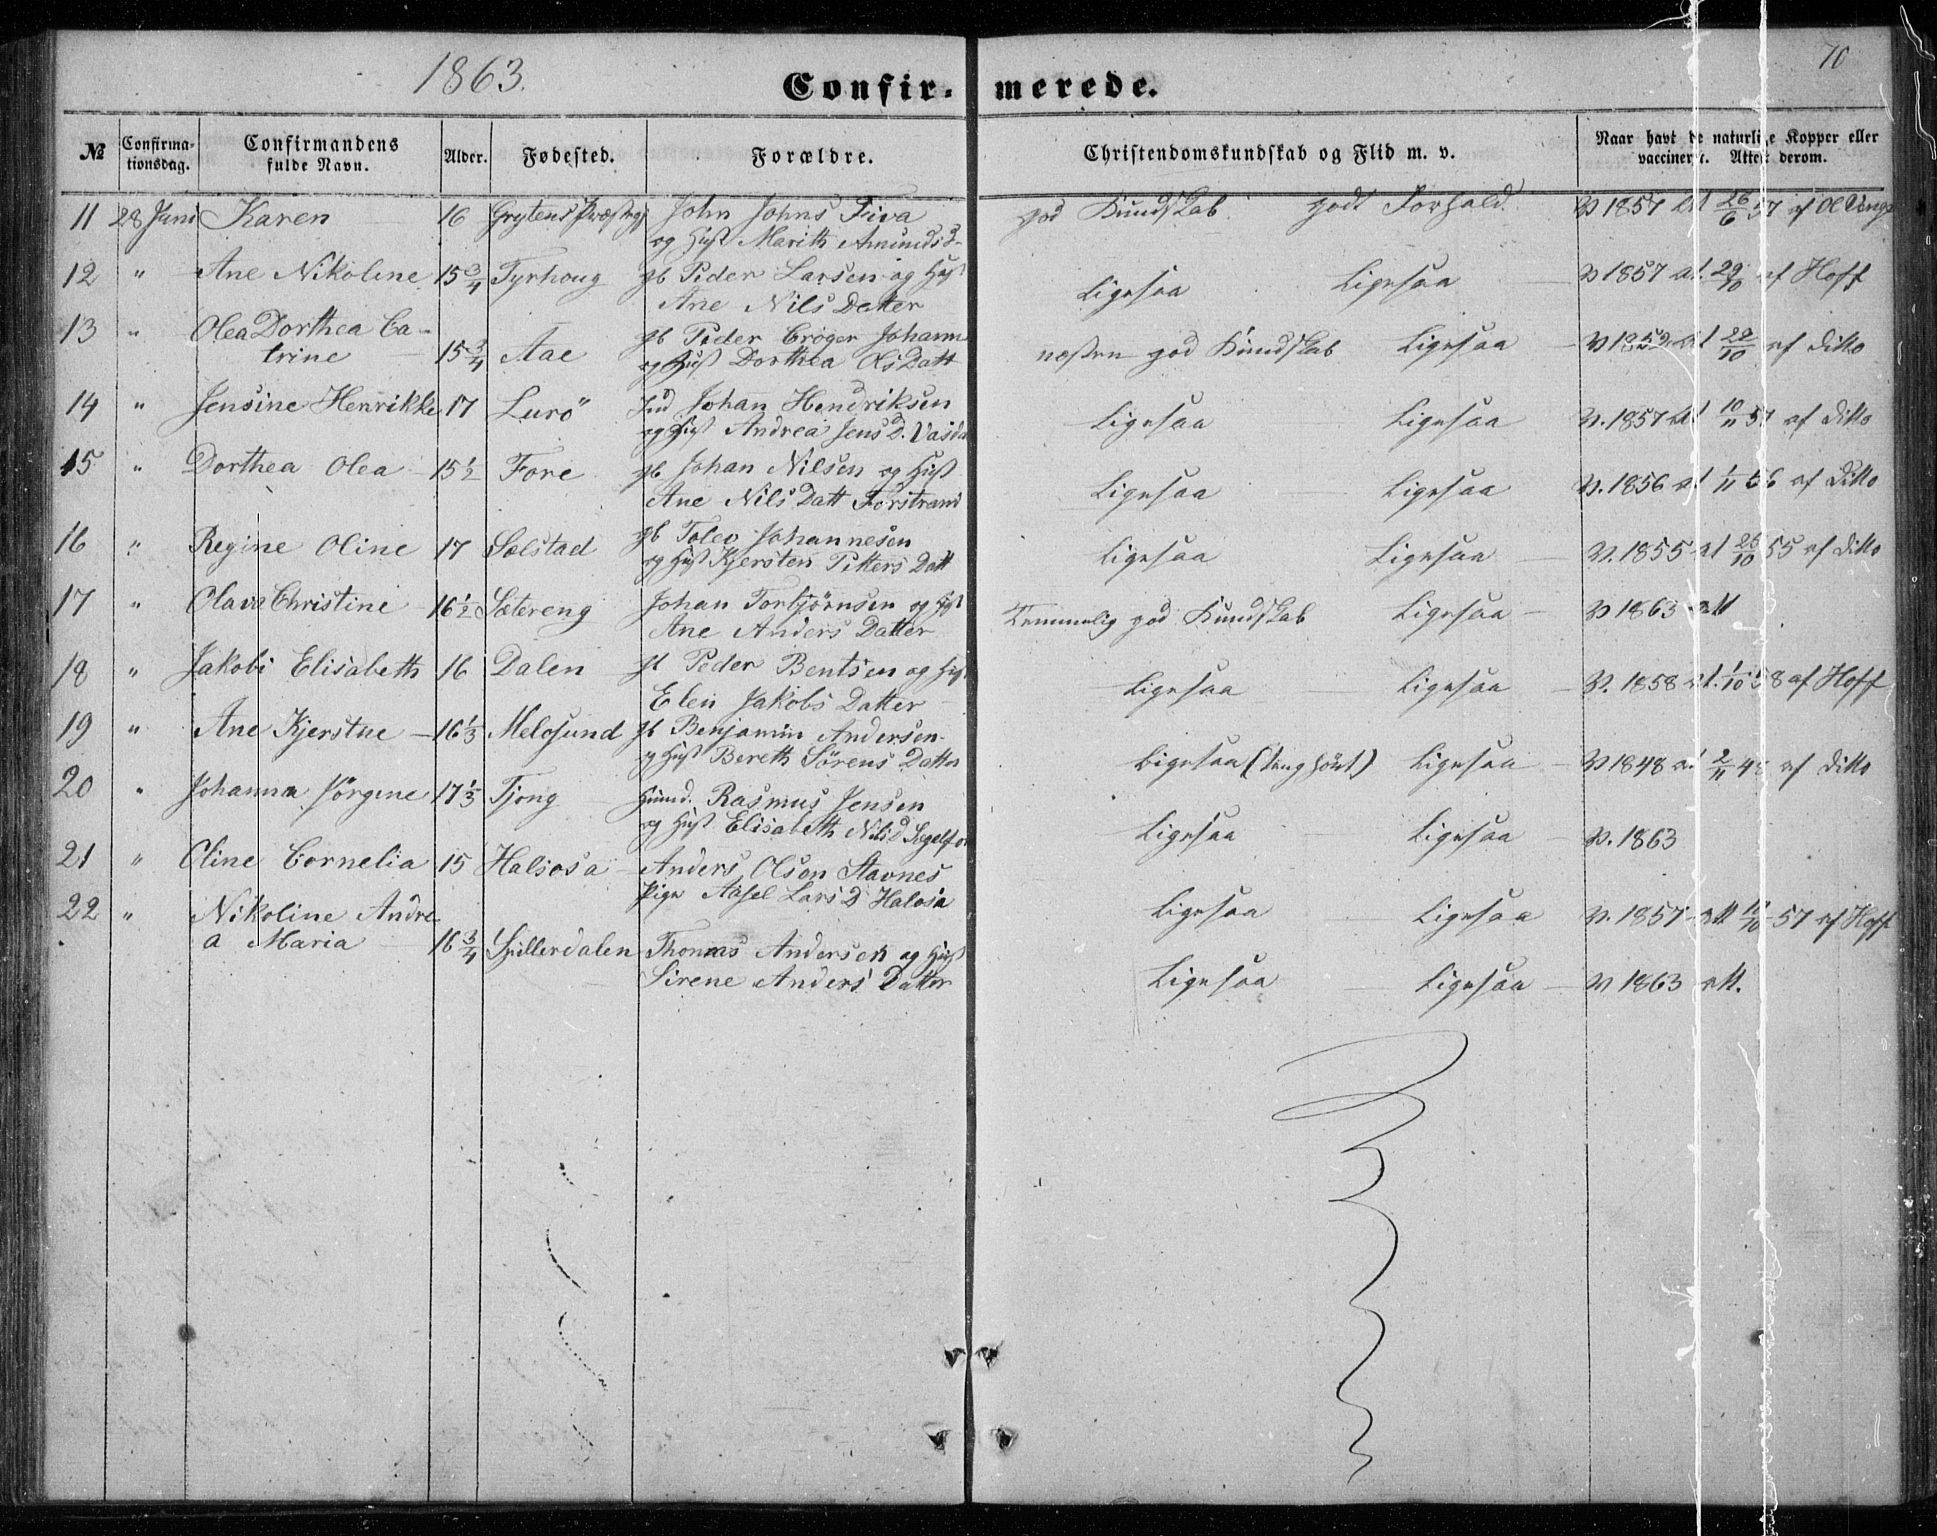 1863.
70
Confir- merede.
№ Confirma-tionsdag. Confirmandens fulde Navn. Alder. Fødested. Forældre. Christendomskundskab og Flid m. v. Naar havt de naturlige Kopper eller vaccineret. Attest derom.
11 28 Juni Karen 16 Grytens John Johns Fiva god Kundskab godt Forhold. V 1857 at 26/6 57 af
og Hust Marith Amunds D
12 " Ane Nikoline 15 3/4 Tyrhoug gb Peder Larsen og Hust Ligesaa Ligesaa V 1857 at. af Hoff
Ane Nils Datter
13 " Olea Dorthea Ca-
trine 15 3/4 Aae gb Peder Crøger Johann næsten god Kundskab Ligesaa at af ditto
og Hust Dorthea Ols Datt
14 " Jensine Henrikke 17 Lurö Ind Johan Hendriksen Ligesaa Ligesaa V. 1857 at 10/11 57 af ditto
og Hust Andrea Jens D.
15 " Dorthea Olea 15 1/2 Fore gb Johan Nilsen og Hust Ligesaa Ligesaa V. 1856 at 1/11 56 af Ditto
Ane Nils Datt Forstrand
16 " Regine Oline 17 Selstad gb Tolev Johannesen Ligesaa Ligesaa V. 1855 at 26/10 55 af ditto
og Hust Kjersten Pitters Datt
17 " Olava Christine 16 1/2 Sætereng Johan Torbjørnsen og Hust Temmelig god Kundskab Ligesaa V 1863 att
Ane Anders Datter
18 " Jakobi Elisabeth 16 Dalen gb Peder Bentsen og Hust Ligesaa Ligesaa V. 1858 at. 1/10 58 af Hoff
Elen Jakobs Datter
19 " Ane Kjerstne 16 1/3 Melosund gb Benjamin Andersen Ligesaa (tunghört) Ligesaa V 1848 at 2/11 48 af ditto
og Hust Bereth Sörens Datter
20 " Johanna Jörgine 17 1/3 Tjong Huusd. Rasmus Jensen Ligesaa Ligesaa V. 1863
og Hust Elisabeth Nils D
21 " Oline Cornelia 15 Halsosa Anders Olsen Stavnes Ligesaa Ligesaa V. 1857 att 57 af Hoff
Pige Aasel Lars D Halosa
22 " Nikoline Andre
a Maria 16 3/4 Spillerdalen Thomas Andersen og Hust Ligesaa Ligesaa V 1863 att.
Sirene Anders Datter